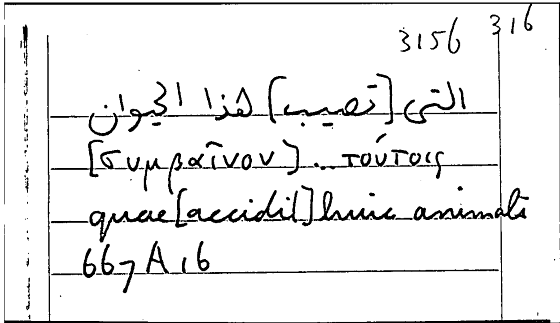 3156 316
التى [تصيب] هذا الحيوان
[συμβαῖνον] .. τούτοις
quae [accidit] huic animali
667A16